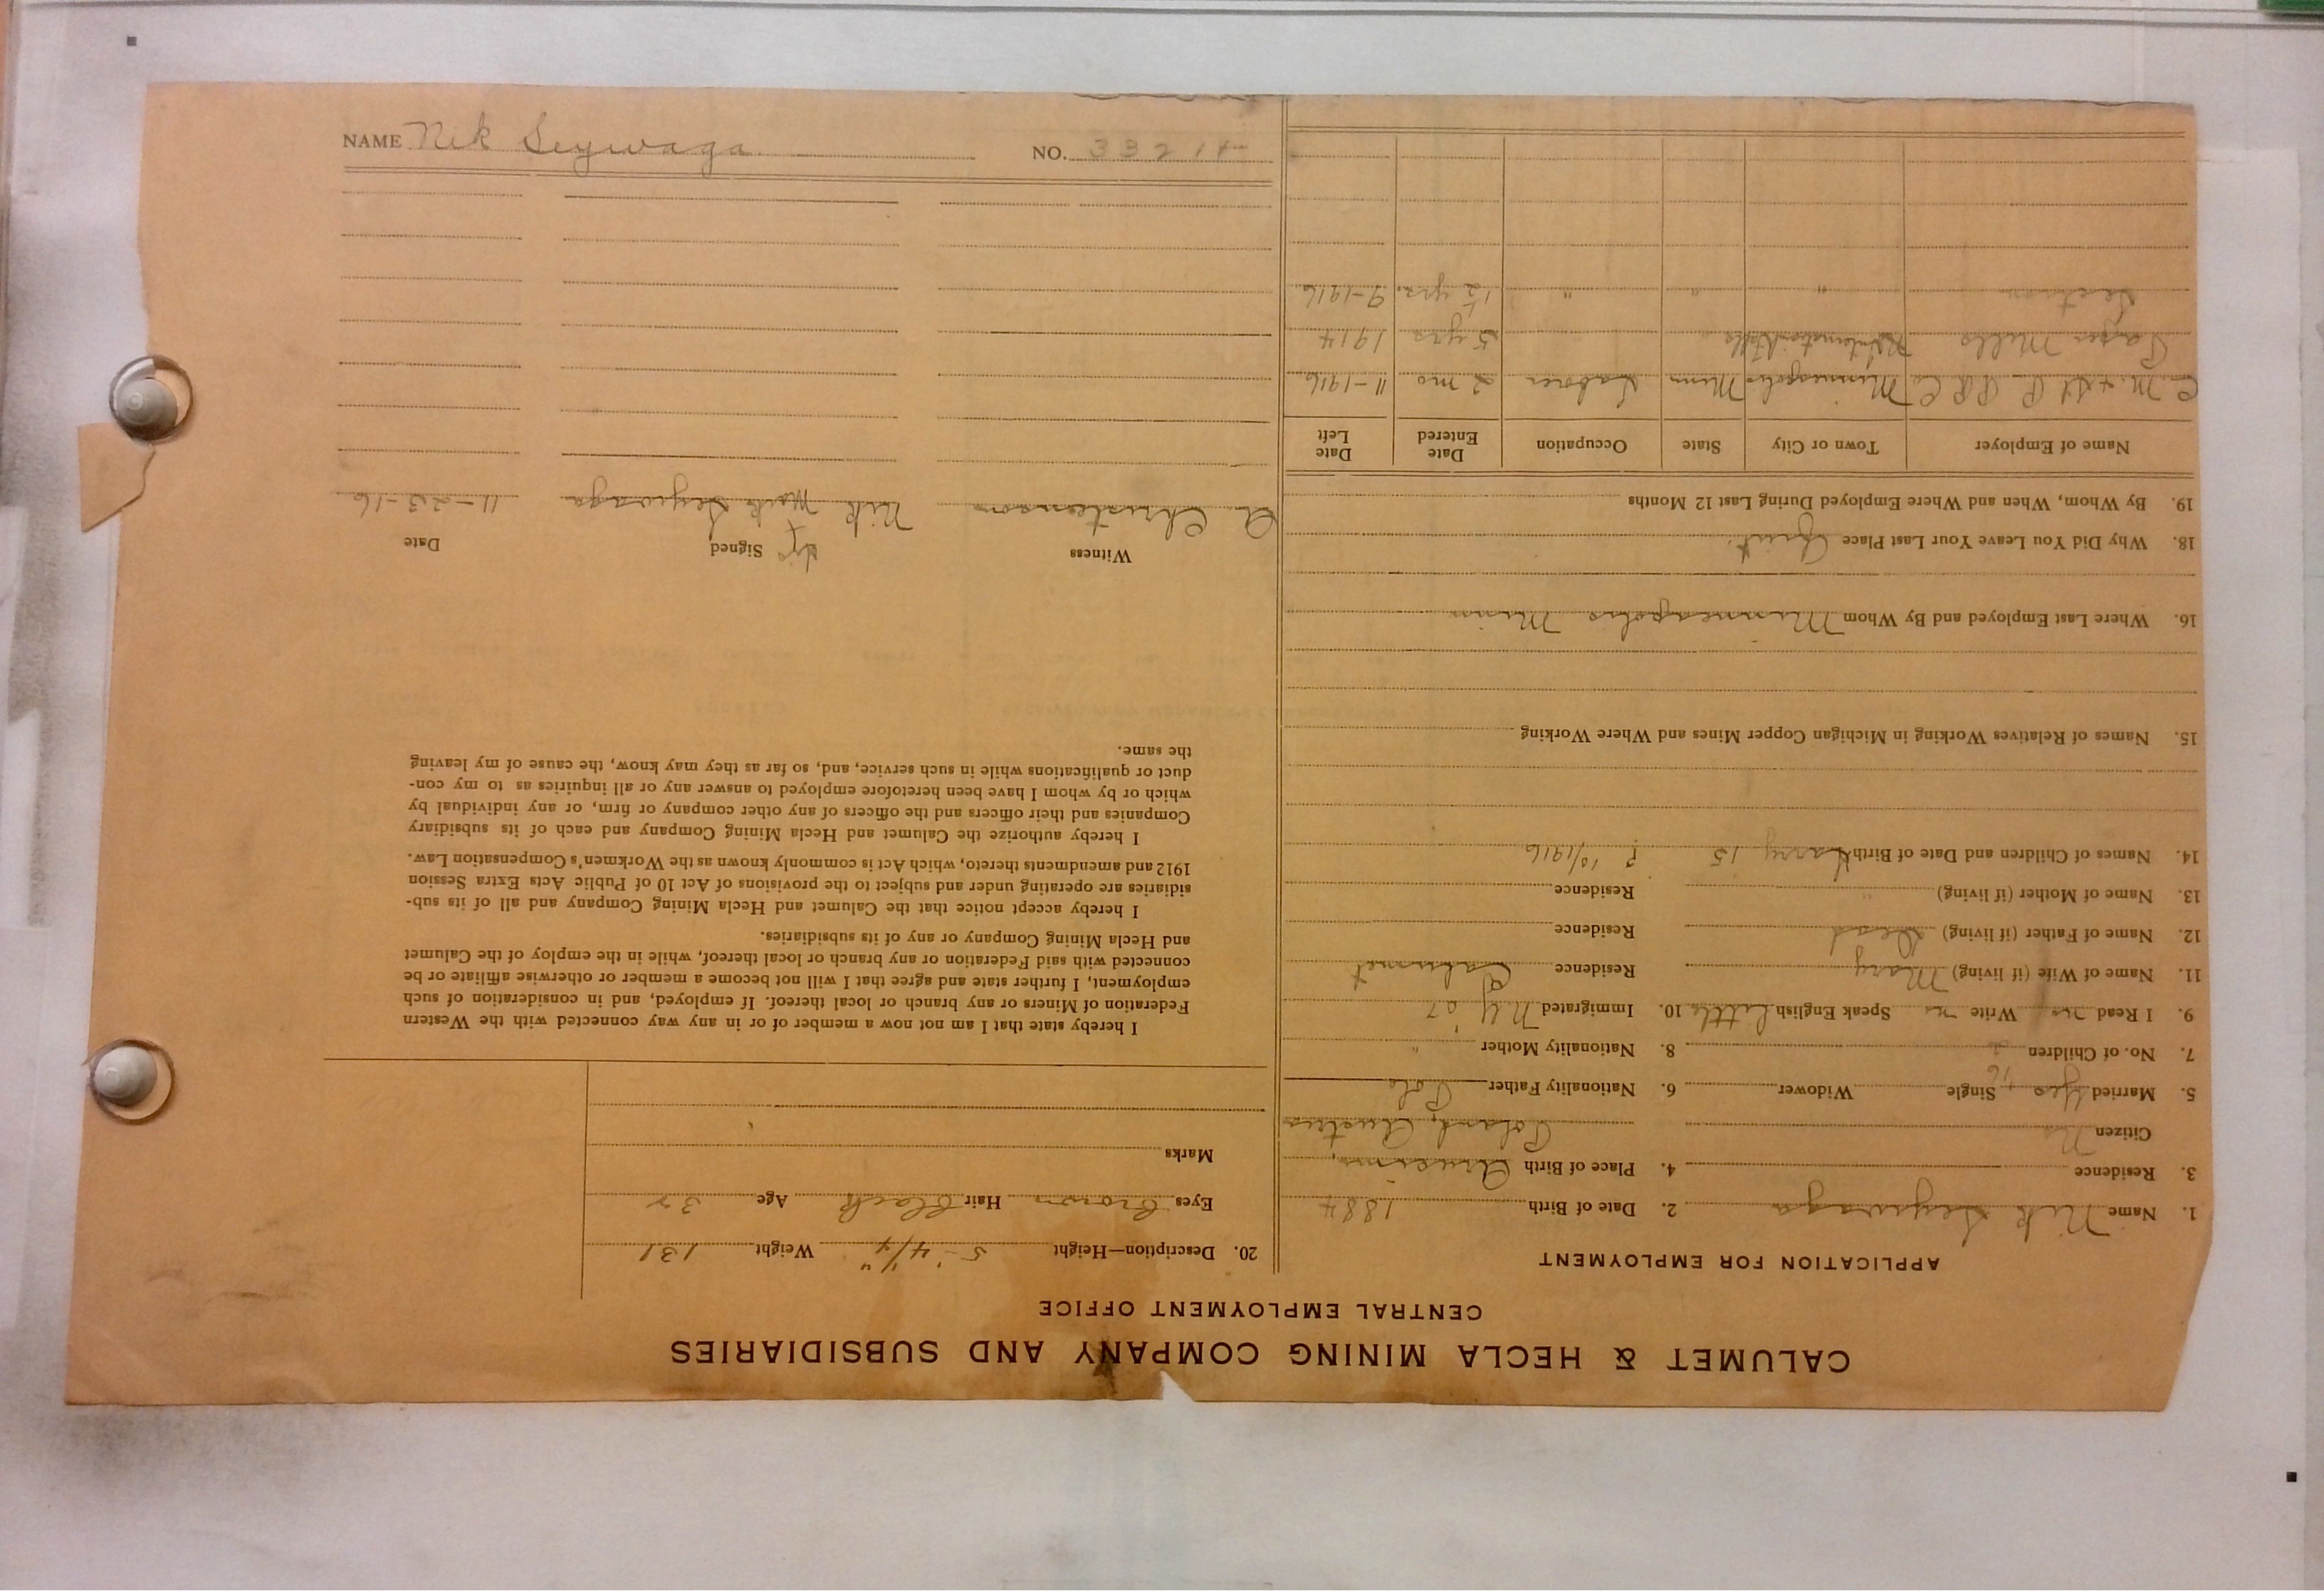 CALUMET & HECLA MINING COMPANY AND SUBSIDIARIES
CENTRAL EMPLOYMENT OFFICE
APPLICATION FOR EMPLOYMENT
1. Name Nik Seywaga 2. Date of Birth 1884
3. Residence 4. Place of Birth
Citizen No Poland, Austria
5. Married Yes, Single Widower 6. Nationality Father Pole
7. No. of Children 2 8. Nationality Mother "
9. I Read no Write no Speak English Little 10. Immigrated N.Y. 07
11. Name of Wife (if living) Mary Residence Calumet
12. Name of Father (if living) Dead Residence
13. Name of Mother (if living) " Residence
14. Names of Children and Date of Birth Harry 15 ? 10/1916
15. Names of Relatives Working in Michigan Copper Mines and Where Working
16. Where Last Employed and By Whom Minneapolis Minn
18. Why Did You Leave Your Last Place Quit.
19. By Whom, When and Where Employed During Last 12 Months
Name of Employer Town or City State Occupation Date Entered Date Left
C. M. & St P. RR Co Minneapolis Minn Laborer 2 mo 11-1916
Paper Mills International Falls 5 yrs 1914
Section " " " 1 1/2 yrs. 9-1916
20. Description—Height 5' 4 1/4" Weight 131
Eyes Brown Hair Black Age 32
Marks
I hereby state that I am not now a member of or in any way connected with the Western
Federation of Miners or any branch or local thereof. If employed, and in consideration of such
employment, I further state and agree that I will not become a member or otherwise affiliate or be
connected with said Federation or any branch or local thereof, while in the employ of the Calumet
and Hecla Mining Company or any of its subsidiaries.
I hereby accept notice that the Calumet and Hecla Mining Company and all of its sub-
sidiaries are operating under and subject to the provisions of Act 10 of Public Acts Extra Session
1912 and amendments thereto, which Act is commonly known as the Workmen's Compensation Law.
I hereby authorize the Calumet and Hecla Mining Company and each of its subsidiary
Companies and their officers and the officers of any other company or firm, or any individual by
which or by whom I have been heretofore employed to answer any or all inquiries as to my con-
duct or qualifications while in such service, and, so far as they may know, the cause of my leaving
the same.
Witness Signed Date
his
X
A Christenson Nik Mark Seywaga 11-23-16
NAME Nik Seywaga NO. 33214